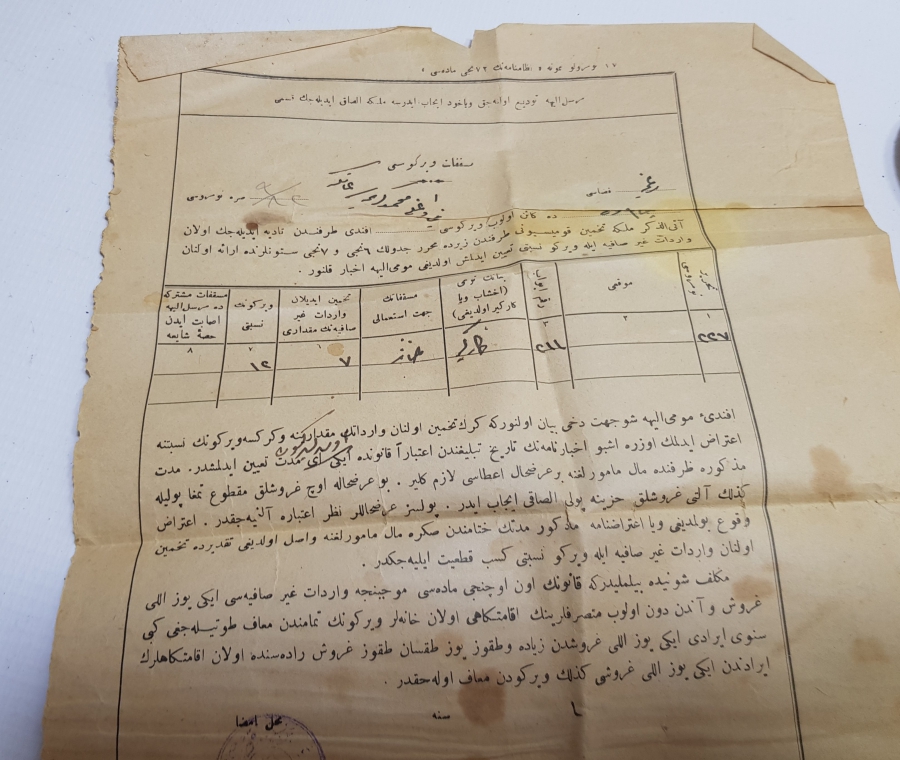 ١٧ نومرولو نمونه ٥ نظامنامه‌نك ٧٢ نجی ماده‌سی ٥
مرسل الیهه تودیع اولنه‌جق ویاخود ایجاب ایدرسه ملكه الصاق ایدیله‌جك قسمی
مسقفات ویركوسی
قضاسی
صره نومروسی
ده كائن اولوب ویركوسی افندی طرفندن تادیه ایدیله‌جك اولان
آتی‌الذكر ملكه تخمین قومیسیونی طرفندن زیرده محرر جدولك ٦ نجی و ٧ نجی ستونلرنده ارائه اولنان
واردات غیر صافیه ایله ویركو نسبتی تعیین ایدلمش اولدیغی مومی‌الیهه اخبار قلنور .
تحریر نومروسی
موقعی
بنانك نوعی (اخشاب ویا كارگیر اولدیغی)
مسقفاتك جهت استعمالی
تخمین ایدیلان واردات غیر صافیه‌نك مقداری
ویركونك نسبتی
مسقفات مشتركه ده مرسل الیهه اصابت ایدن حصهٔ شایعه
١ ٢ ٣ ٧ ٨
٢٢٧ كارگیر ٧ ١٢
افندیٔ مومی‌الیهه شو جهت دخی بیان اولنوركه كرك تخمین اولنان وارداتك مقدارینه وكركسه ویركونك نسبتنه
اعتراض ایدلك اوزره اشبو اخبارنامه‌نك تاریخ تبلیغندن اعتباراً قانونده ایكی آی مدت تعیین ایدلمشدر . مدت
مذكوره ظرفنده مال مامورلغنه برعرضحال اعطاسی لازم كلیر . بو عرضحاله اوچ غروشلق مقطوع تمغا پولیله
كذلك آلتی غروشلق خزینه پولی الصاقی ایجاب ایدر . پولسز عرضحاللر نظر اعتباره آلنمیه‌جقدر . اعتراض
وقوع بولمدیغی ویا اعتراضنامه مذكور مدتك ختامندن صكره مال مامورلغنه واصل اولدیغی تقدیرده تخمین
اولنان واردات غیر صافیه ایله ویركو نسبتی كسب قطعیت ایلیه‌جكدر .
مكلف شونیده بیلملیدركه قانونك اون اوچنجی ماده‌سی موجبنجه واردات غیر صافیه‌سی ایكی یوز اللی
غروش و آندن دون اولوب متصرفلرینك اقامتكاهی اولان خانه‌لر ویركونك تمامندن معاف طوتیله‌جغی كبی
سنوی ایرادی ایكی یوز اللی غروشدن زیاده وطقوز یوز طقسان طقوز غروش راده‌سنده اولان اقامتكاهلرك
ایرادندن ایكی یوز اللی غروشی كذلك ویركودن معاف اوله‌جقدر .
سنه
محل امضا